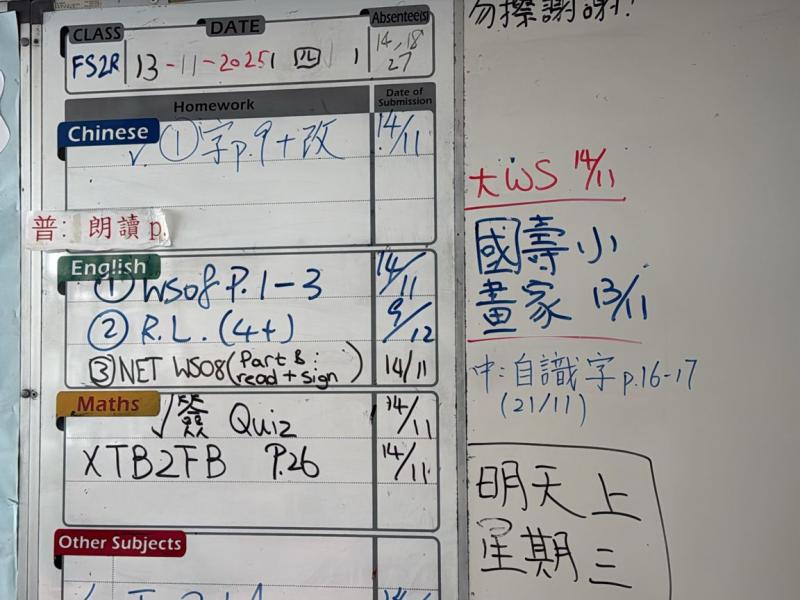 CLASS DATE Absentee(s)
FS2R 13-11-2025 四 14,18
27
Homework Date of Submission
Chinese
✓ ①字p.9+改 14/11
普: 朗讀 p.
English
① WS08 P.1-3 14/11
② R.L. (4+) 9/12
③ NET WS08 (Part B: read + sign) 14/11
Maths
✓簽 Quiz 14/11
XTB2FB P.26 14/11
Other Subjects
勿擦謝謝!
大WS 14/11
國壽小
畫家 13/11
中:自識字 p.16-17
(21/11)
明天上
星期三